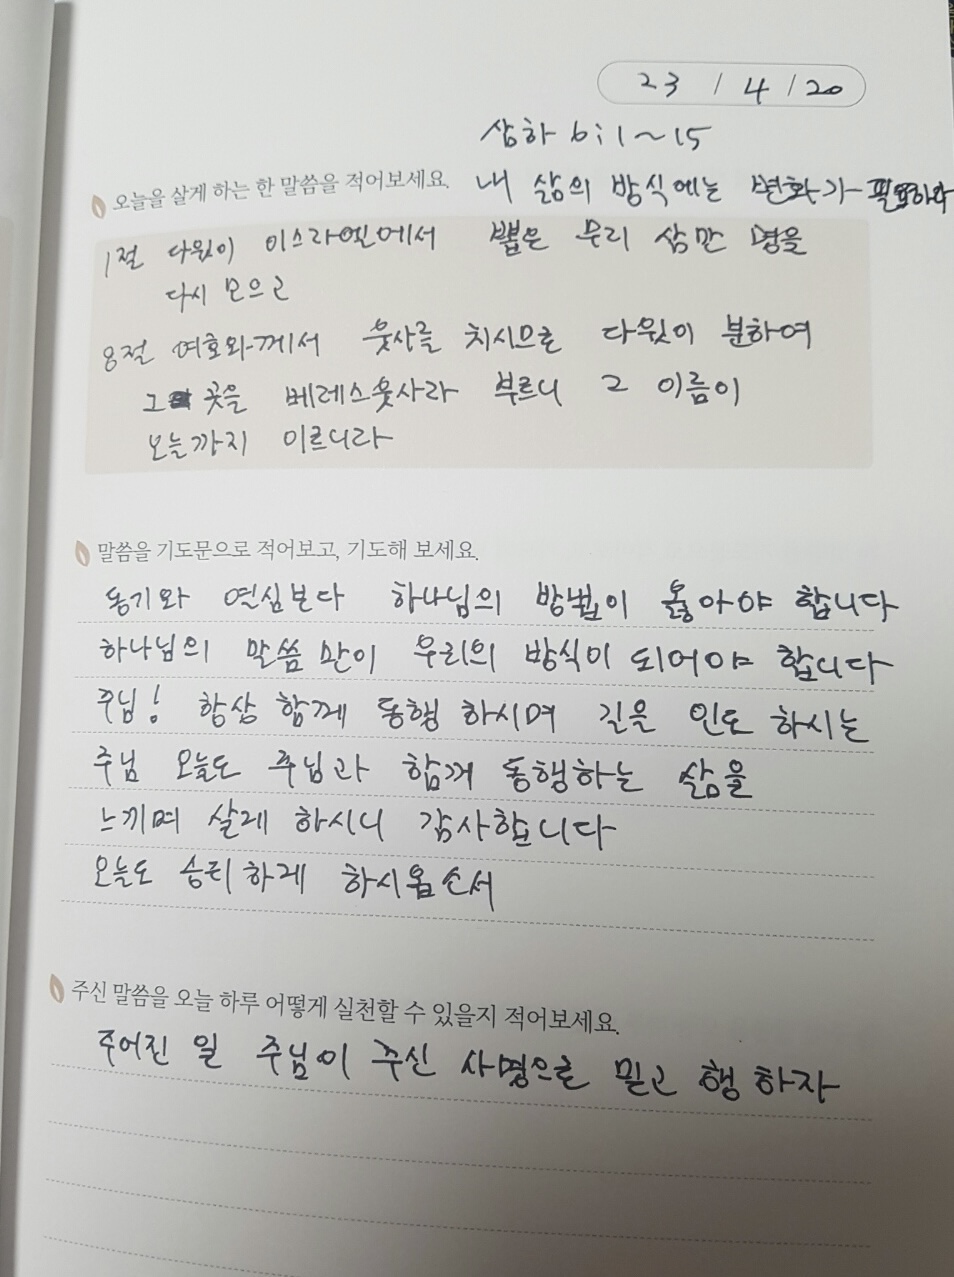 23 / 4 / 20
삼하 6:1~15
오늘을 살게 하는 한 말씀을 적어보세요.
내 삶의 방식에는 변화가 필요하다
1절 다윗이 이스라엘에서 뽑은 무리 삼만 명을
다시 모으고
8절 여호와께서 웃사를 치시므로 다윗이 분하여
그 곳을 베레스웃사라 부르니 그 이름이
오늘까지 이르니라
말씀을 기도문으로 적어보고, 기도해 보세요.
동기와 열심보다 하나님의 방법이 옳아야 합니다
하나님의 말씀 만이 우리의 방식이 되어야 합니다
주님! 항상 함께 동행 하시며 길을 인도 하시는
주님 오늘도 주님과 함께 동행하는 삶을
느끼며 살게 하시니 감사합니다
오늘도 승리하게 하시옵소서
주신 말씀을 오늘 하루 어떻게 실천할 수 있을지 적어보세요.
주어진 일 주님이 주신 사명으로 믿고 행 하자